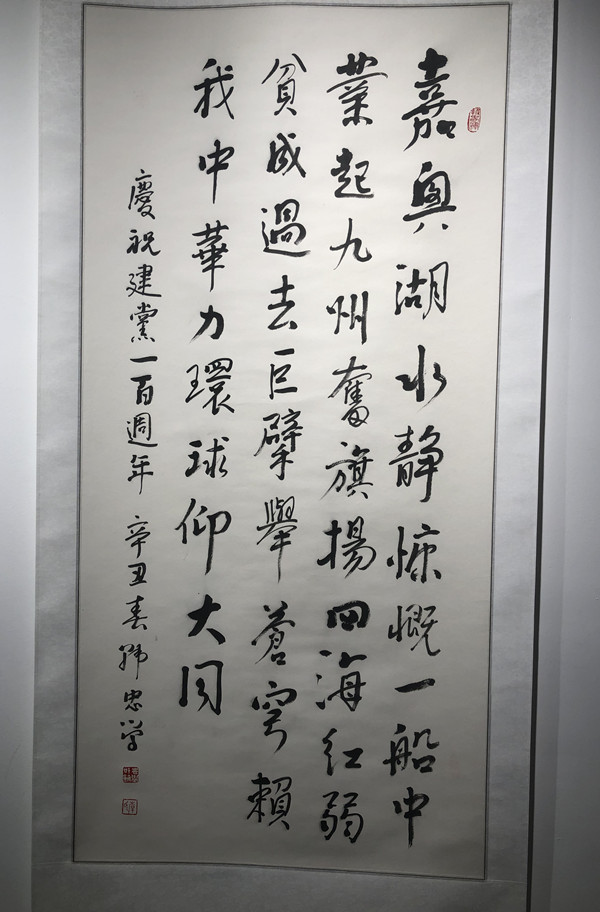 嘉興湖水靜慷慨一船中
業起九州奮旗揚四海紅弱
貧成過去巨擘舉蒼穹賴
我中華力環球仰大同
慶祝建黨一百週年 辛丑春韩忠学